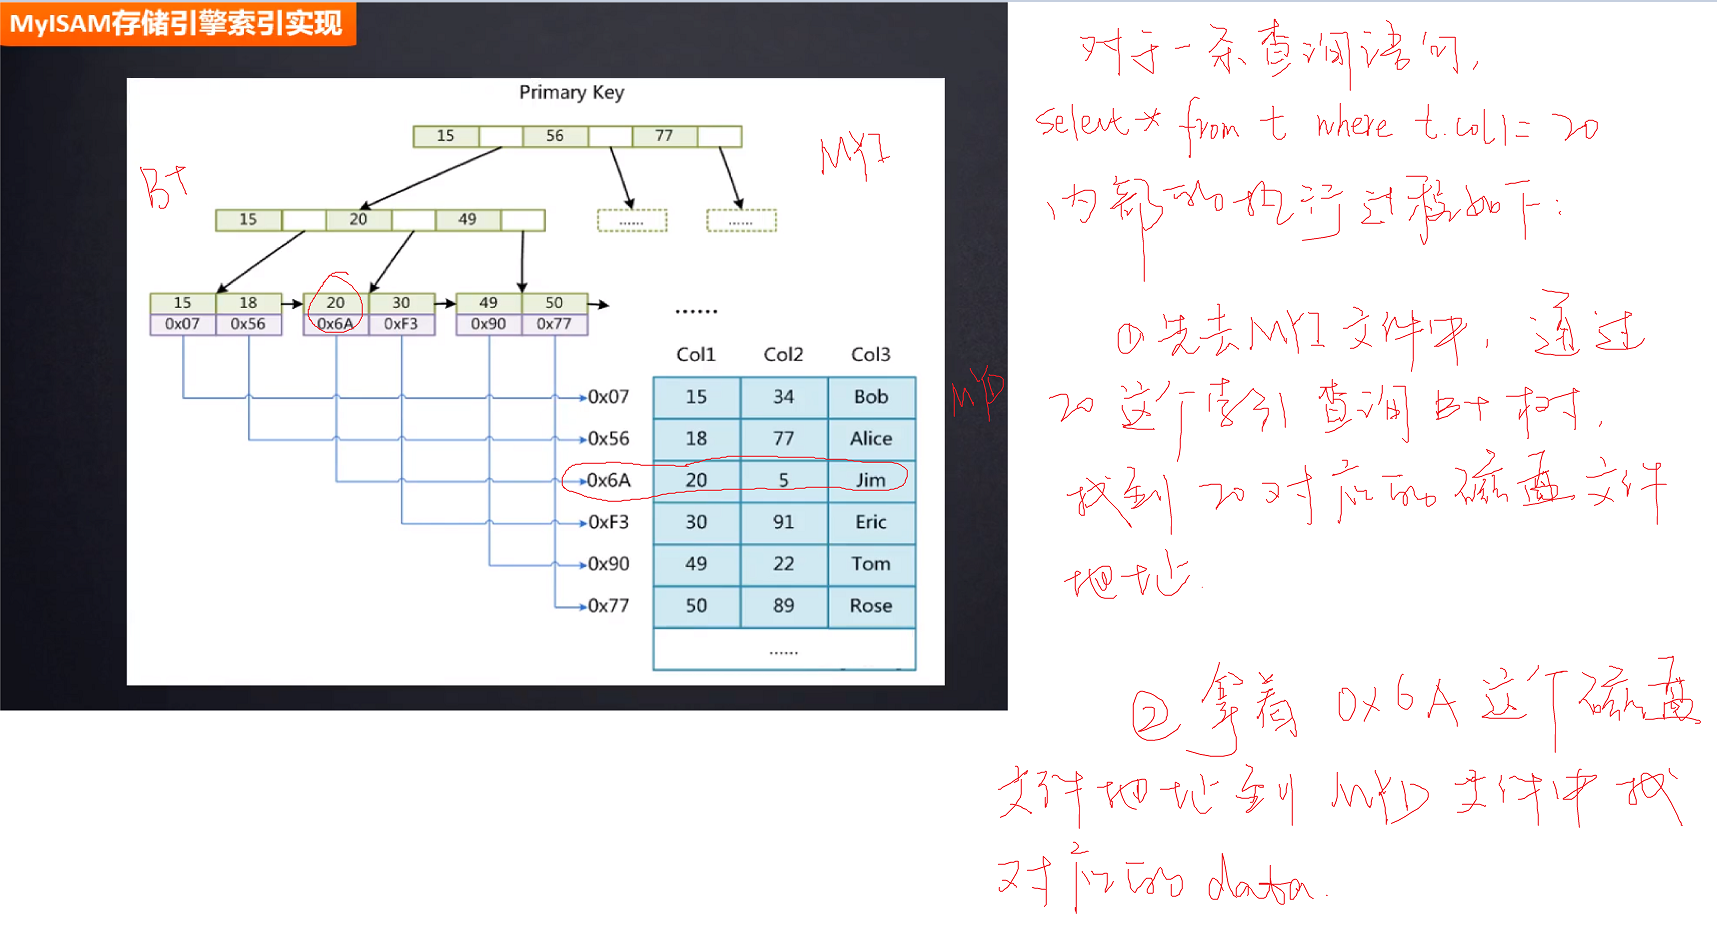 MyISAM存储引擎索引实现
Primary Key
15 56 77
MYI
B+
15 20 49 ...... ......
15 18 20 30 49 50
0x07 0x56 0x6A 0xF3 0x90 0x77
......
Col1 Col2 Col3
0x07 15 34 Bob
MYD
0x56 18 77 Alice
0x6A 20 5 Jim
0xF3 30 91 Eric
0x90 49 22 Tom
0x77 50 89 Rose
......
对于一条查询语句,
select * from t where t.col1 = 20
内部的执行过程如下:
①先去MYI文件中,通过
20这个索引查询B+树,
找到20对应的磁盘文件
地址.
②拿着0x6A这个磁盘
文件地址到MYD文件中找
对应的data.